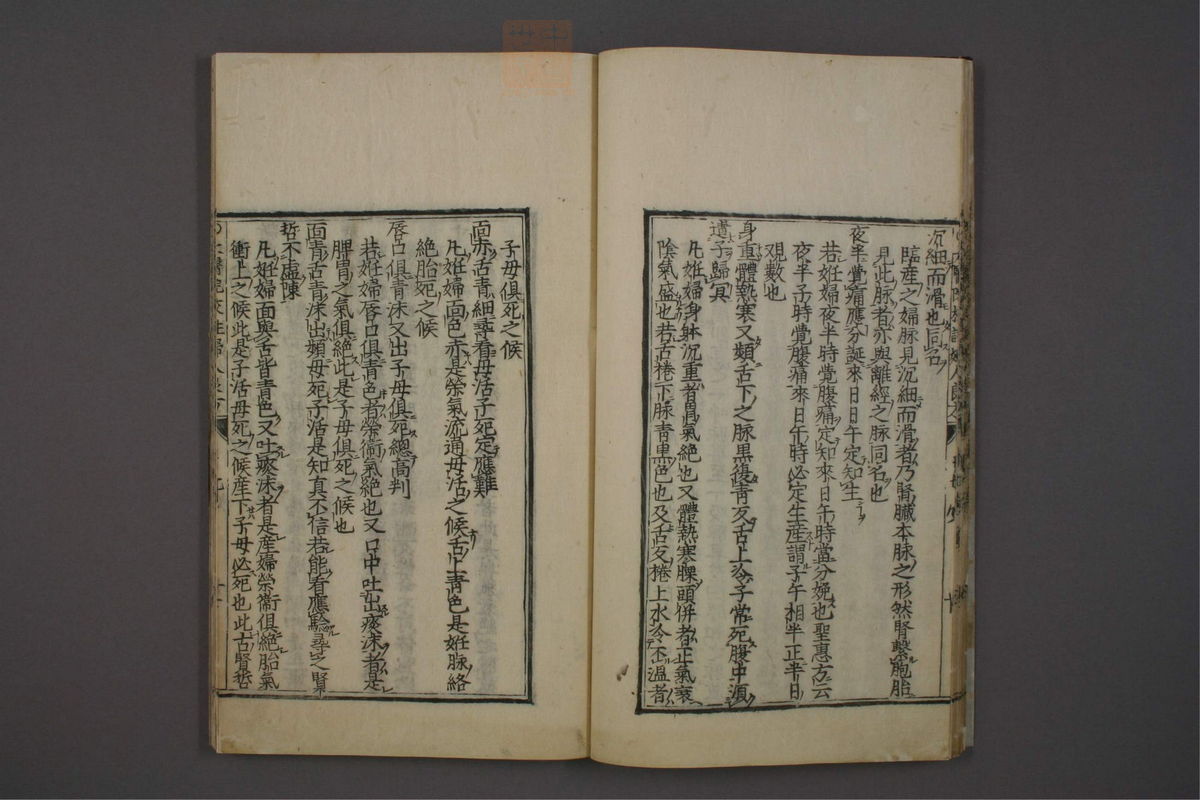 沉細而滑也同名
臨産之婦脉見沉細而滑者乃腎臟本脉之形然腎繫胞胎
見此脉者亦與離經之脉同名也
夜半覺痛應分誕來日日午定知生
若姙婦夜半時覺腹痛定知來日午時當分娩也聖惠方云
夜半子時覺腹痛來日午時必定生産謂子午相半正半日
觀數也
身重體熱寒又頻舌下之脉黒復青反舌上冷子常死腹中湏
遣子歸冥
凡姙婦身躰沉重者胃氣絶也又體熱寒慄頭併者正氣衰
陰氣盛也若舌捲下脉青黒色也及舌反捲上水冷不温者
子母俱死之候
面赤舌青細尋看母活子死定應難
凡姙婦面色赤是榮氣流通母活之候舌上青色是姙脉絡
絶胎死之候
唇口俱青沫又出子母俱死總高判
若姙婦唇口俱青色者榮衛氣絶也又口中吐出痰沫者是
脾胃之氣俱絶此是子母俱死之候也
面青舌青沫出頻母死子活是知真不信若能看應驗尋之賢
哲不虚陳
凡姙婦面與舌皆青色又吐痰沫者是産婦榮衛俱絶胎氣
衝上之候此是子活母死之候産下子母必死也此古賢哲